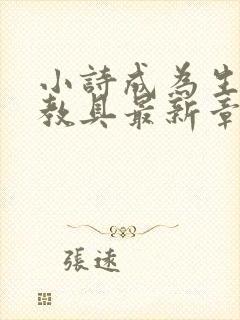 小詩成為生
教具最新章
張遠